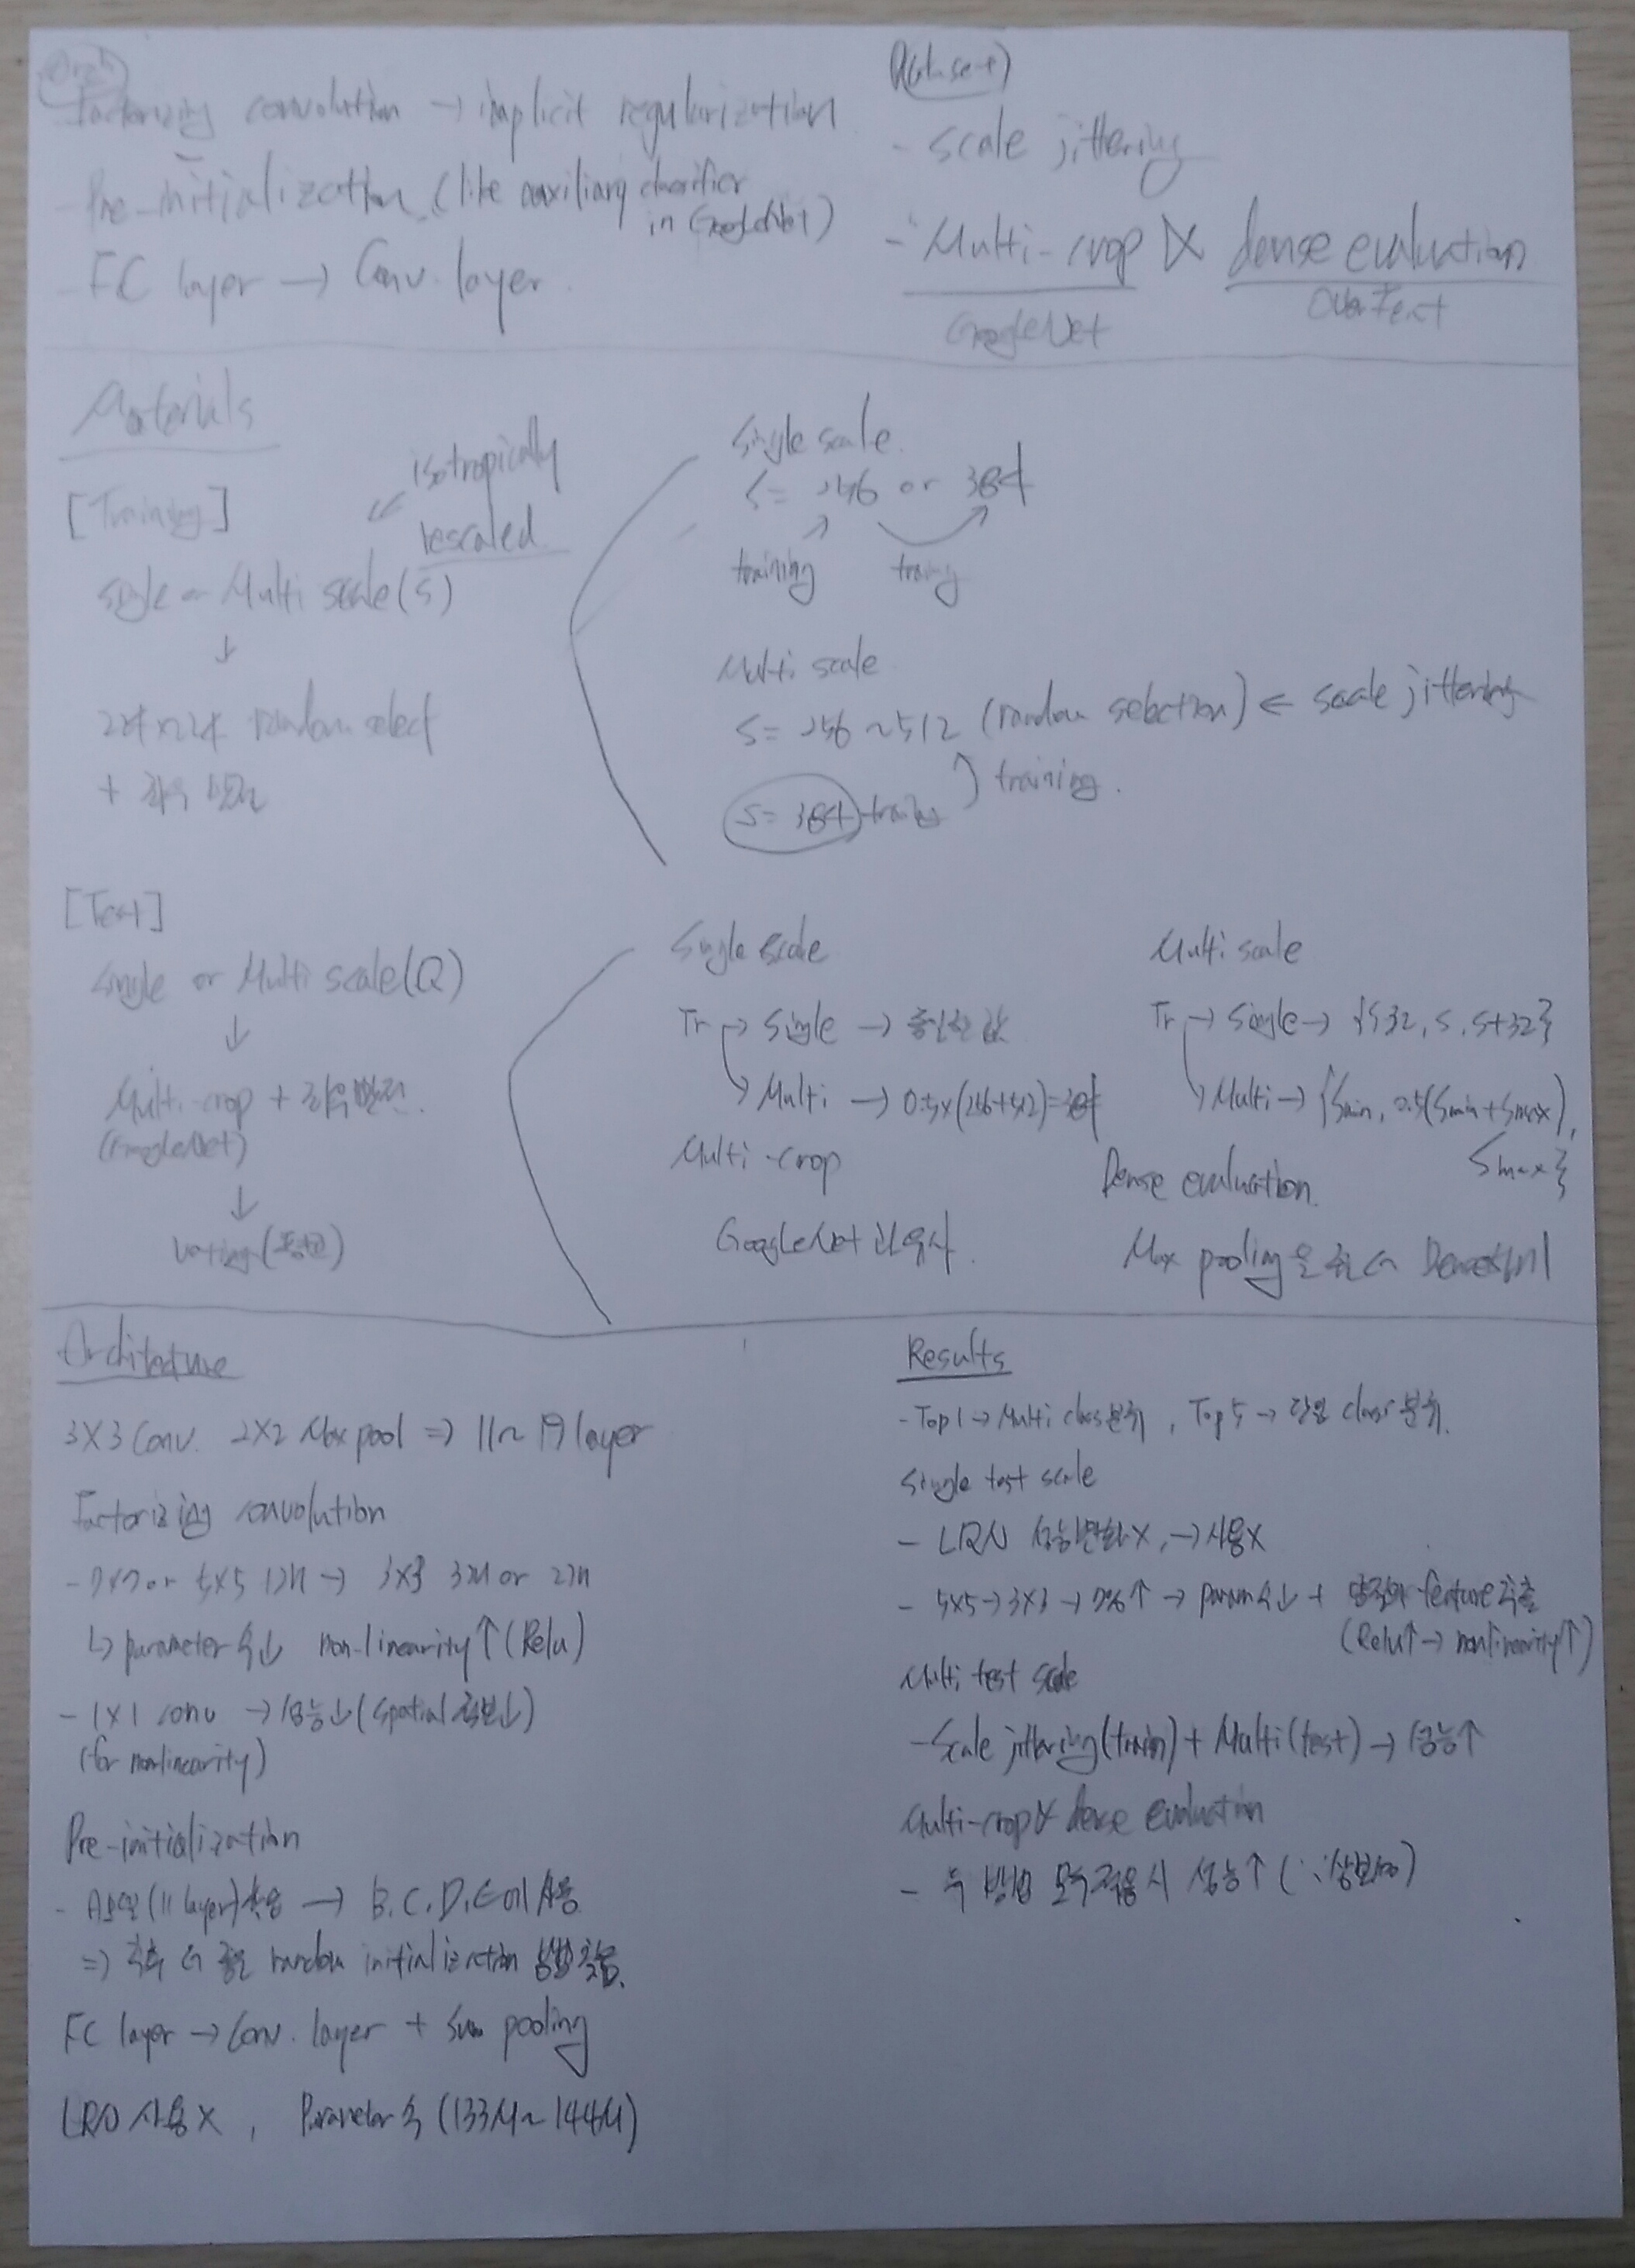 Arch
Factorizing convolution → implicit regularization
- Pre-initialization (like auxiliary classifier
in GoogLeNet)
- FC layer → Conv. layer.
Dataset)
- Scale jittering
- Multi-crop & dense evaluation
GoogLeNet
OverFeat
Materials
[Training]
isotropically
rescaled
Single or Multi scale(S)
↓
224x224 random select
+ 좌우 반전
Single scale.
S = 256 or 384
training
Multi scale
S = 256 ~ 512 (random selection) ← scale jittering
S = 384 training
training.
[Test]
Single or Multi scale(Q)
↓
Multi-crop + 좌우반전.
(GoogLeNet)
↓
voting(평균)
Single scale
Tr → Single → 동일한 값
→ Multi → 0.5x(256+512)=384
Multi-crop
GoogLeNet과 유사.
Multi scale
Tr → Single → {S-32, S, S+32}
→ Multi → {Smin, 0.5(Smin + Smax),
Smax}
Dense evaluation.
Max pooling을 Dense하게
Architecture
3X3 Conv. 2X2 Max pool ⇒ 11~19 layer
Factorizing convolution
- 7x7 or 5x5 1개 → 3x3 3개 or 2개
↳ parameter 수↓ non-linearity↑ (Relu)
- 1x1 conv → 성능↓ (spatial 정보↓)
(for nonlinearity)
Pre-initialization
- A모델(11 layer)학습 → B, C, D, E에 사용
⇒ 추후 더 좋은 random initialization 방법 찾음.
FC layer → Conv. layer + Sum pooling
LRN 사용 X, Parameter 수 (133M ~ 144M)
Results
- Top1 → Multi class 분류, Top5 → 단일 class 분류.
Single test scale
- LRN 성능변화 X, → 사용X
- 5x5 → 3x3 → 7%↑ → param 수↓ + feature 추출
(Relu↑ → nonlinearity↑)
Multi test scale
- Scale jittering(train) + Multi(test) → 성능↑
Multi-crop & dense evaluation
- 두 방법 모두 적용 시 성능↑ (∵상보적)